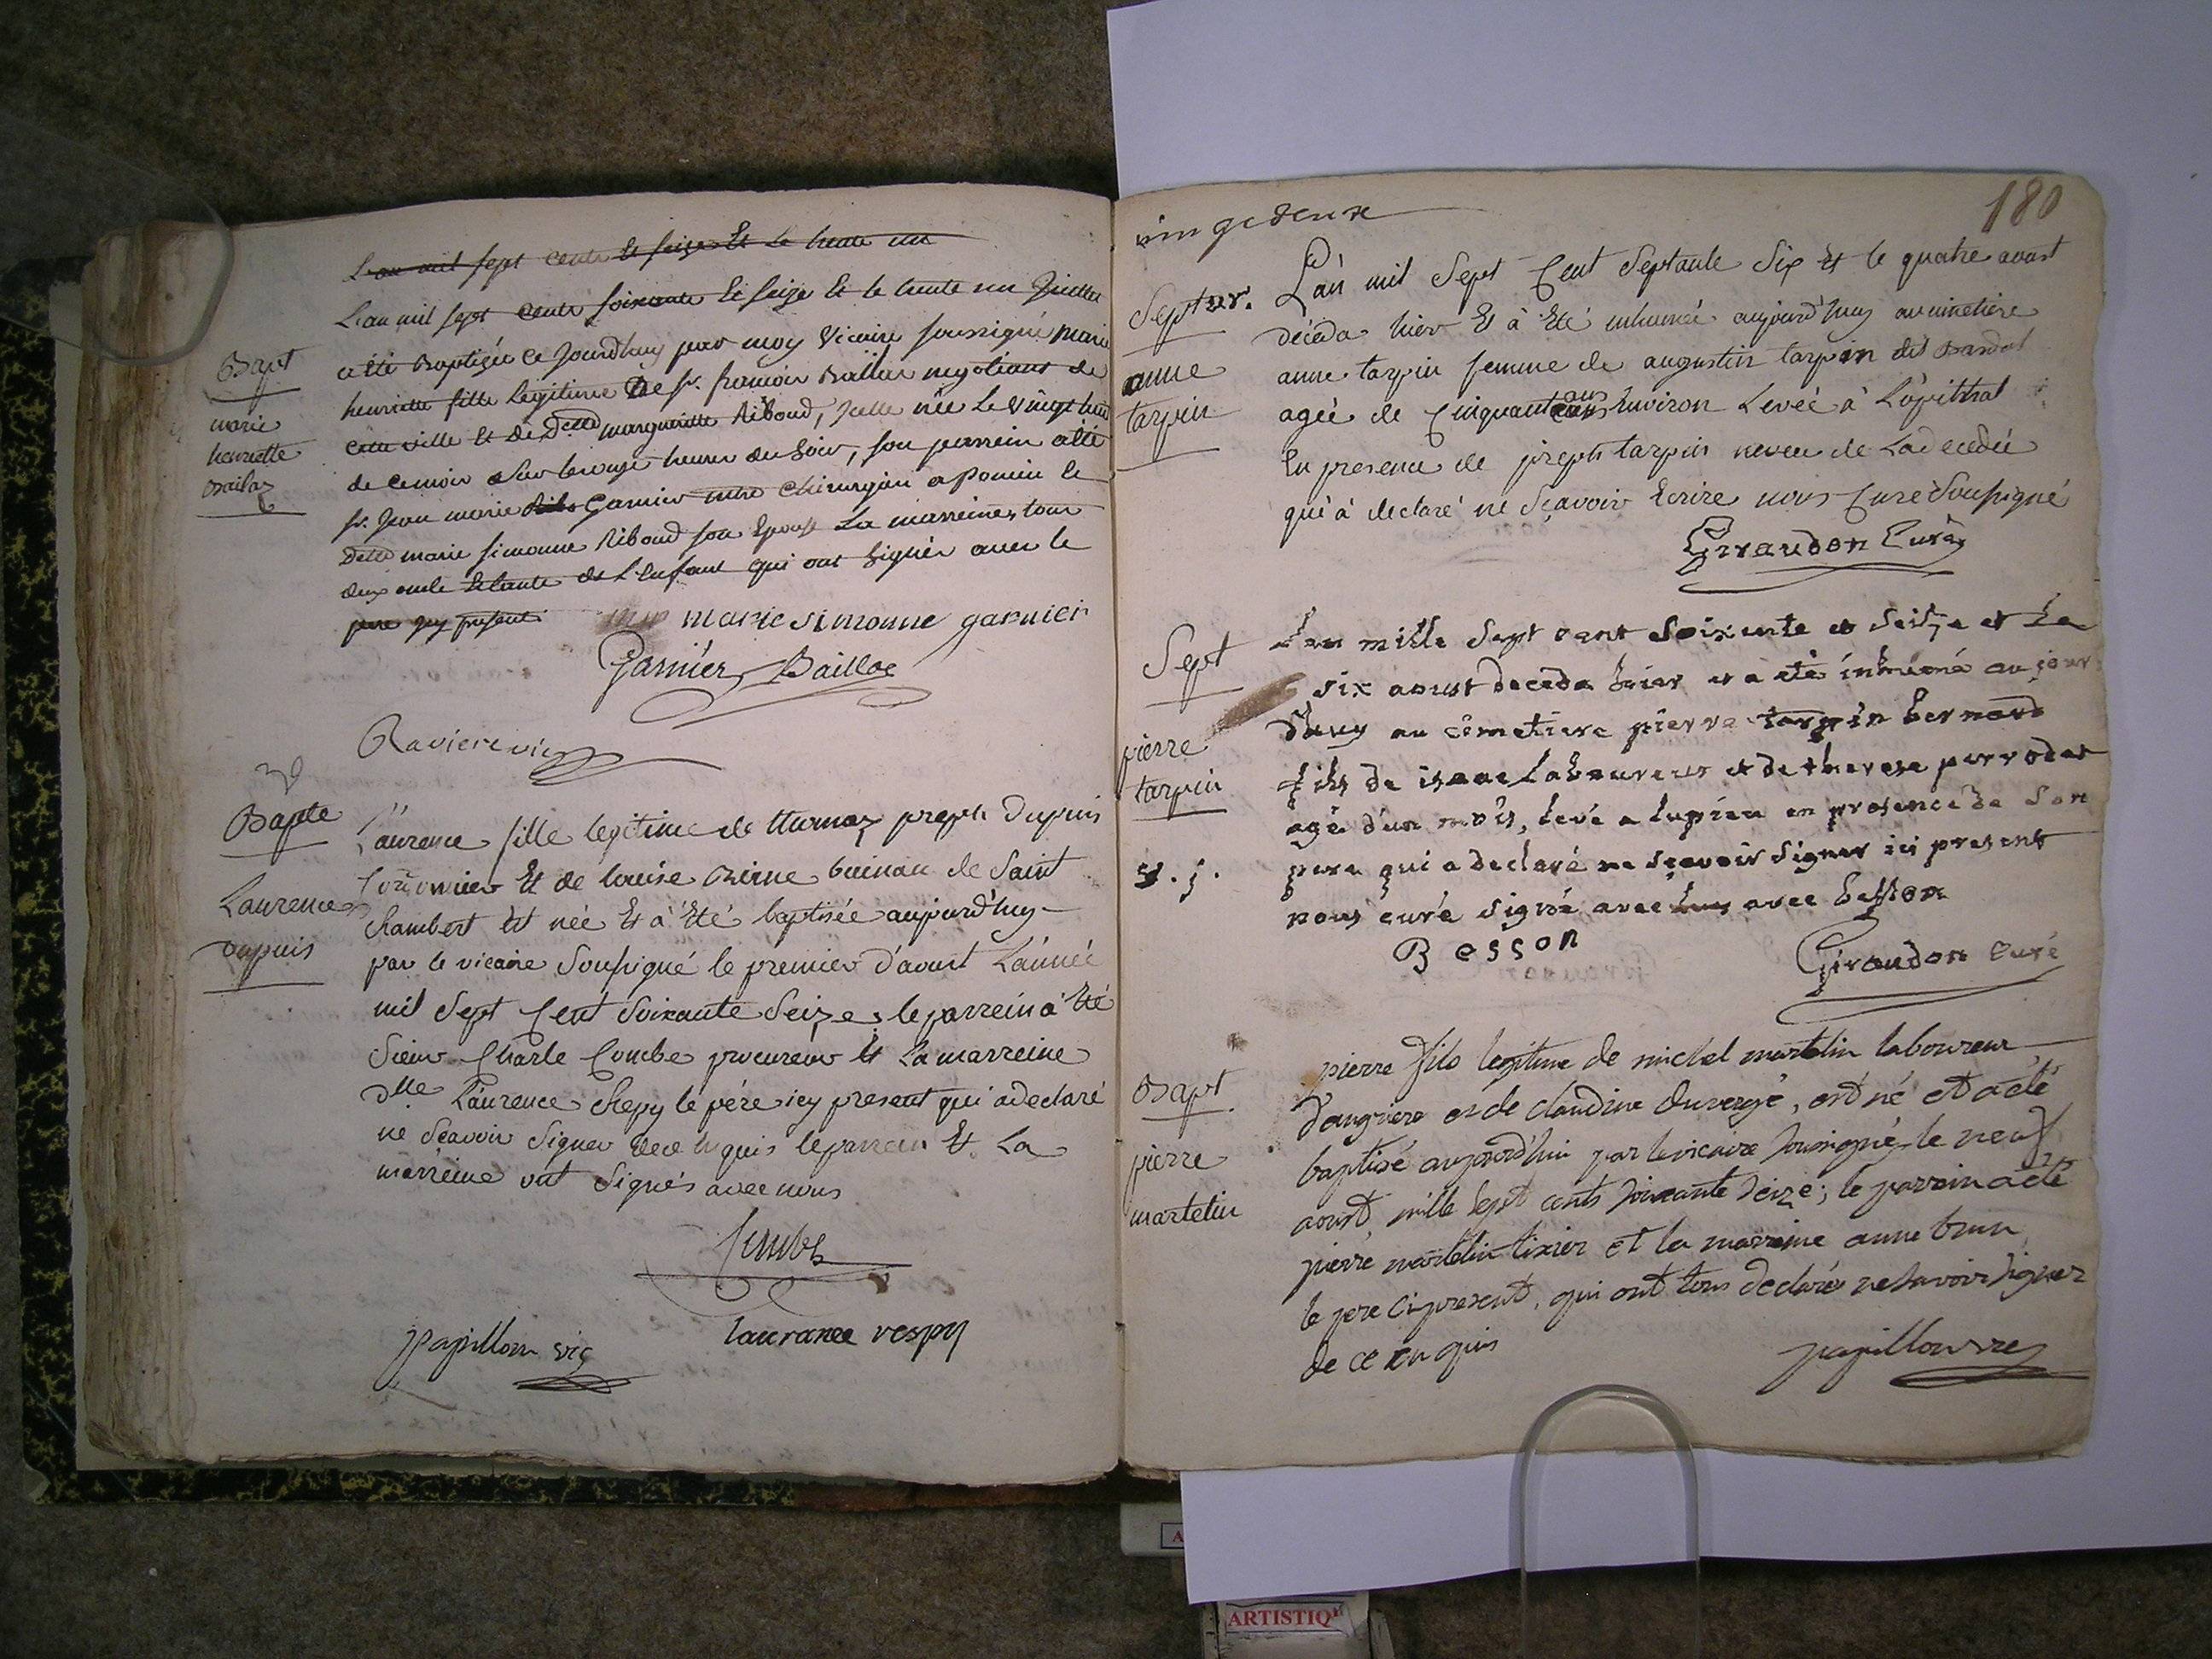 L'an mil sept cents et seize Et Le trente un
L'an mil sept cents soixante Et seize Et le trente un Juillet
Bapt
a été Baptizée ce Jourdhuy par moy Vicaire soussigné marie
marie
henriette fille Legitime De sr. françois Baillaz negotiant de
henriette
Cette ville Et de Delle marguerite Riboud, Jcelle née Le vingt huit
Bailaz
de ce mois heures du soir, son parrein a été
sr. Jean marie Garnier mtre Chirurgien a le
Delle marie simonne Riboud son Epouse La marreine, tous
deux oncle Et tante de L'Enfant qui ont signés avec le
pere icy présent
marie simonne garnier
Garnier Baillac
Raviere vic
Bapte
Laurence fille legitime de Dupuis
et de Louise de Saint
Laurence
Rambert Est née Et à Eté baptisée aujourd'huy
Dupuis
par le vicaire Soussigné le premier d'aoust L'année
mil Sept Cent Soixante Seize le parrein à Eté
Sieur Charle Combe procureur Et La marreine
Dlle Laurence le père icy present qui a declaré
ne Sçavoir Signer de ce Enquis le parrein Et La
marreine ont Signés avec nous
Combe
papillon vic
laurance vespy
180
vingt deux
Septur.
L'an mil Sept Cent Septante Six Et le quatre aoust
décéda hier Et à Eté inhumée aujourd'huy au cimetiere
anne
anne tarpin femme de augustin tarpin dit
tarpin
ageé de Cinquante ans Environ Leveé à L'opithal
En presence de joseph tarpin neveu de La decedée
qui à declaré ne Sçavoir Ecrire nous Curé Soussigné
Giraudon Curé
Sept
L'an mille Sept cent Soixente et Seitze et Le
six aoust deceda hier et a eté inhumé au jour
pierre
dhuy au cimetiere pierre tarpin bernard
tarpin
fils de isaac Laboureur et de therese perrodet
agé d'un mois, levé a lupieu en presence de son
pere qui a declaré ne sçavoir signer ici present
nous curé signé avec luy avec besson
Besson
Giraudon curé
Bapt
pierre fils legitime de michel martelin laboureur
d'angriere et de claudine duvergé, est né et a été
pierre
baptisé aujourd'hui par le vicaire soussigné le neuf
martelin
aoust mille sept cents soixante seize; le parrein a été
pierre martelin tixier et la marreine anne brun
le pere ci present, qui ont tous declaré ne savoir signer
de ce enquis
papillon vre